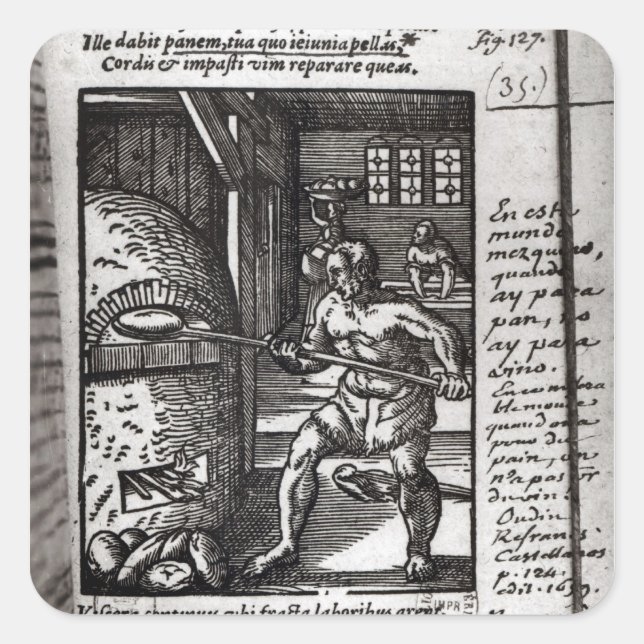 Ille dabit panem, tua quo ieiunia pellas,*
Cordis & impasti vim reparare queas.
Fig. 127.
(35.)
En este
mundo
mezquino,
quando
ay para
pan, no
ay para
vino.
En ce
monde
quand on a
pour du
pain, on
n'a pas p
du vin.
Oudin
Refranes
Castellanos
p. 124.
edit. 1659.
IMPR